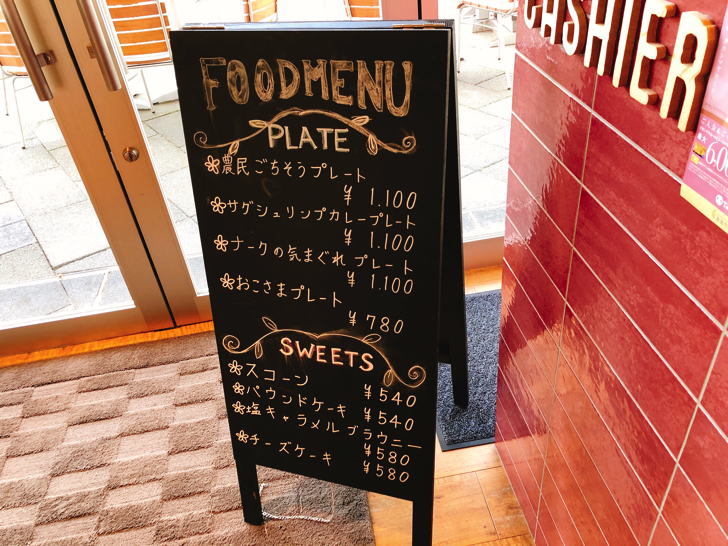 FOODMENU
PLATE
農民ごちそうプレート
¥ 1.100
サグシュリンプカレープレート
¥ 1.100
ナークの気まぐれプレート
¥ 1.100
おこさまプレート
¥ 780
SWEETS
スコーン ¥540
パウンドケーキ ¥540
塩キャラメルブラウニー
¥580
チーズケーキ ¥580
CASHIER